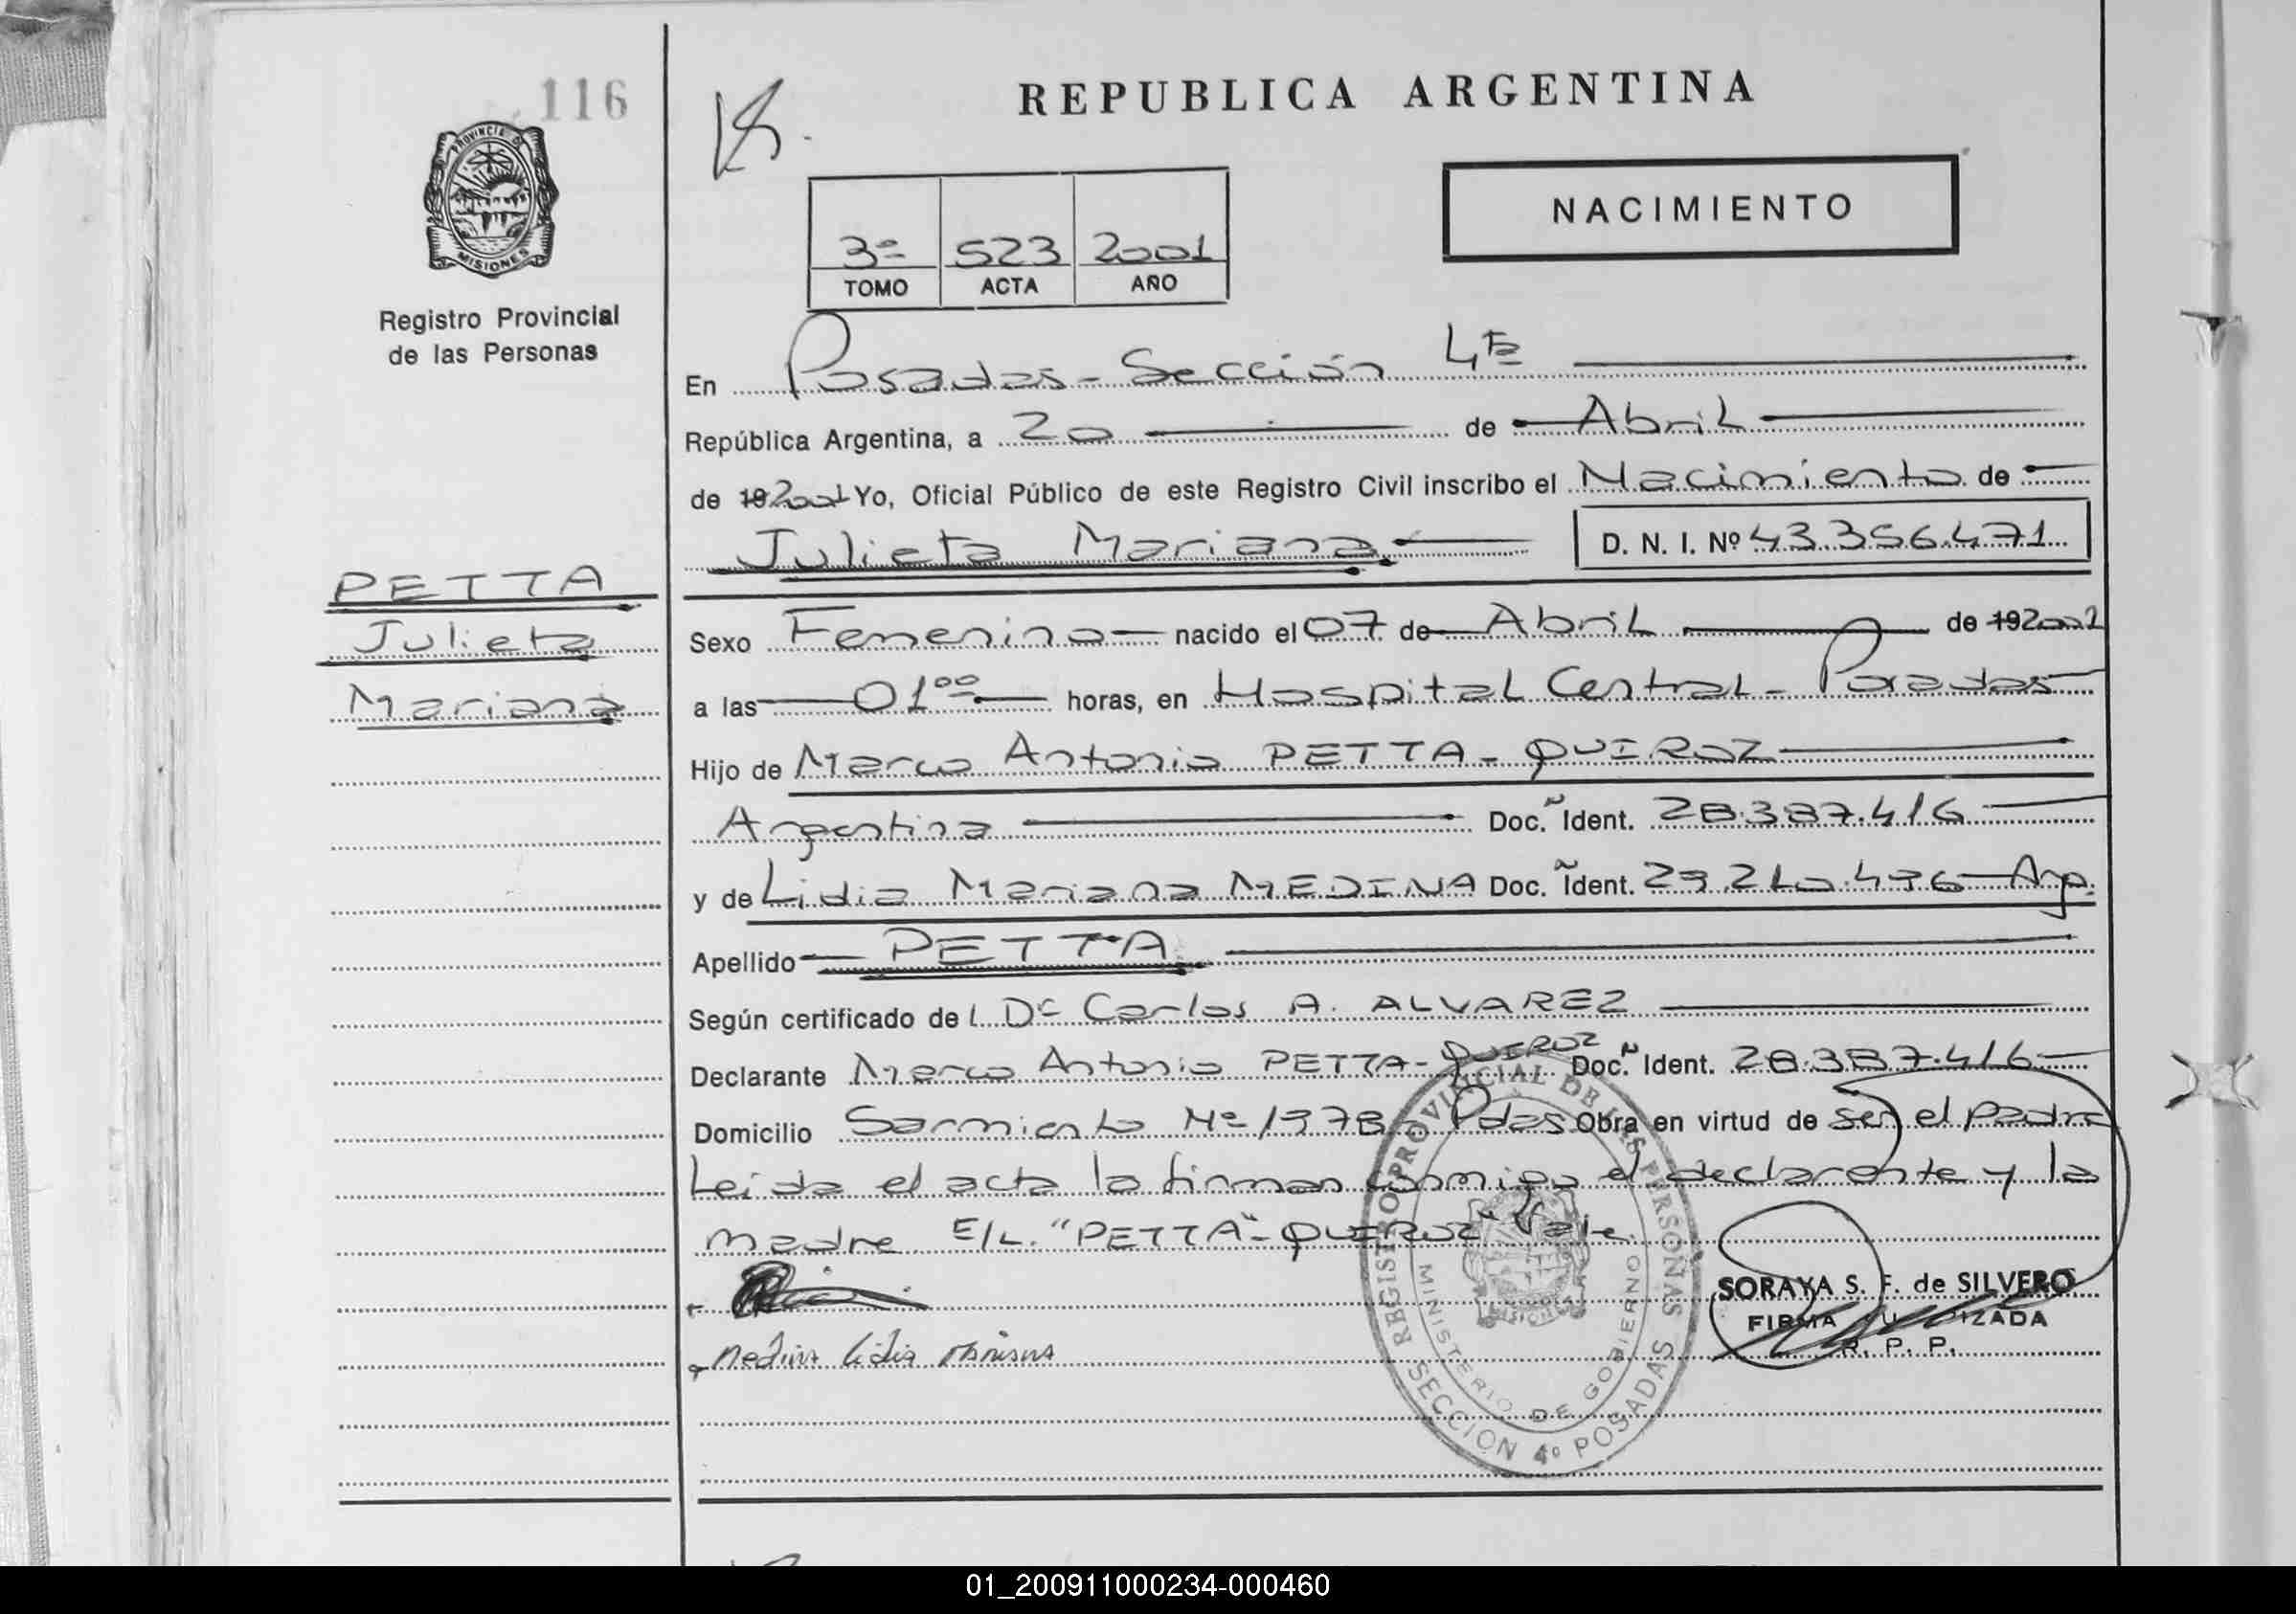 116
REPUBLICA ARGENTINA
PROVINCIA DE
MISIONES
Registro Provincial
de las Personas
NACIMIENTO
3º 523 2001
TOMO ACTA AÑO
En Posadas - Sección 4ta
República Argentina, a 20 de Abril
de 192001 Yo, Oficial Público de este Registro Civil inscribo el Nacimiento de
Julieta Mariana D. N. I. Nº 43.356.471
PETTA
Julieta
Mariana
Sexo Femenino nacido el 07 de Abril de 192001
a las 01 00 horas, en Hospital Central - Posadas
Hijo de Marco Antonio PETTA - QUIROZ
Argentina Doc. Ident. 28.387.416
y de Lidia Mariana MEDINA Doc. Ident. Arg.
Apellido PETTA
Según certificado del Dr Carlos A. ALVAREZ
Declarante Marco Antonio PETTA - QUIROZ Doc. Ident. 28.387.416
Domicilio Sarmiento Nº 1978 Pdas Obra en virtud de ser el padre
Leida el acta la firman conmigo el declarante y la
madre E/L. "PETTA" - QUIROZ" Vale.
Medina Lidia Mariana
REGISTRO PROVINCIAL DE LAS PERSONAS
MINISTERIO DE GOBIERNO
SECCION 4º POSADAS
SORAYA S. F. de SILVERO
FIRMA AUTORIZADA
R. P. P.
01_200911000234-000460